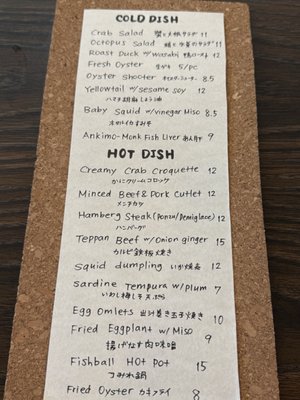 COLD DISH
Crab Salad 蟹と大根サラダ 11
Octopus Salad 蛸と水菜のサラダ 11
Roast Duck w/Wasabi 鴨ロースト 12
Fresh Oyster 生がき 5/pc
Oyster Shooter オイスターシューター 8.5
Yellowtail w/sesame soy 12
ハマチ胡麻しょうゆ
Baby Squid w/vinegar Miso 8.5
ホタルイカすみそ
Ankimo-Monk Fish Liver あん肝 9
HOT DISH
Creamy Crab Croquette 12
かにクリームコロッケ
Minced Beef & Pork Cutlet 12
メンチカツ
Hamberg Steak (Ponzu/Demiglace) 12
ハンバーグ
Teppan Beef w/Onion ginger 15
カルビ鉄板焼き
Squid dumpling いか焼売 12
Sardine Tempura w/plum 7
いわし梅しそ天ぷら
Egg Omlets 出汁巻き玉子焼き 10
Fried Eggplant w/Miso 9
揚げなす肉味噌
Fishball Hot Pot 15
つみれ鍋
Fried Oyster カキフライ 8